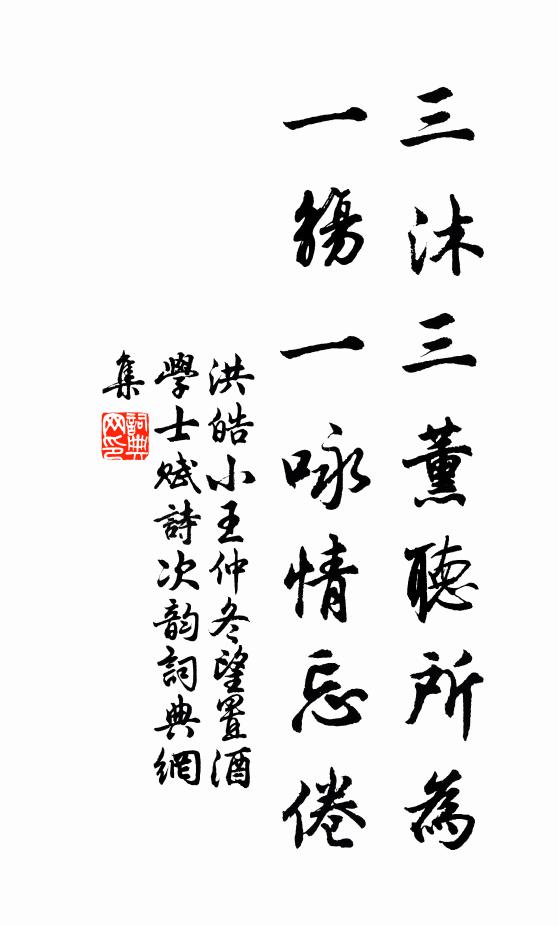 三沐三薰聽所為
一觴一咏情忘倦
洪皓小王仲冬望置酒
學士賦詩次韵詞典網
集
詞典網印